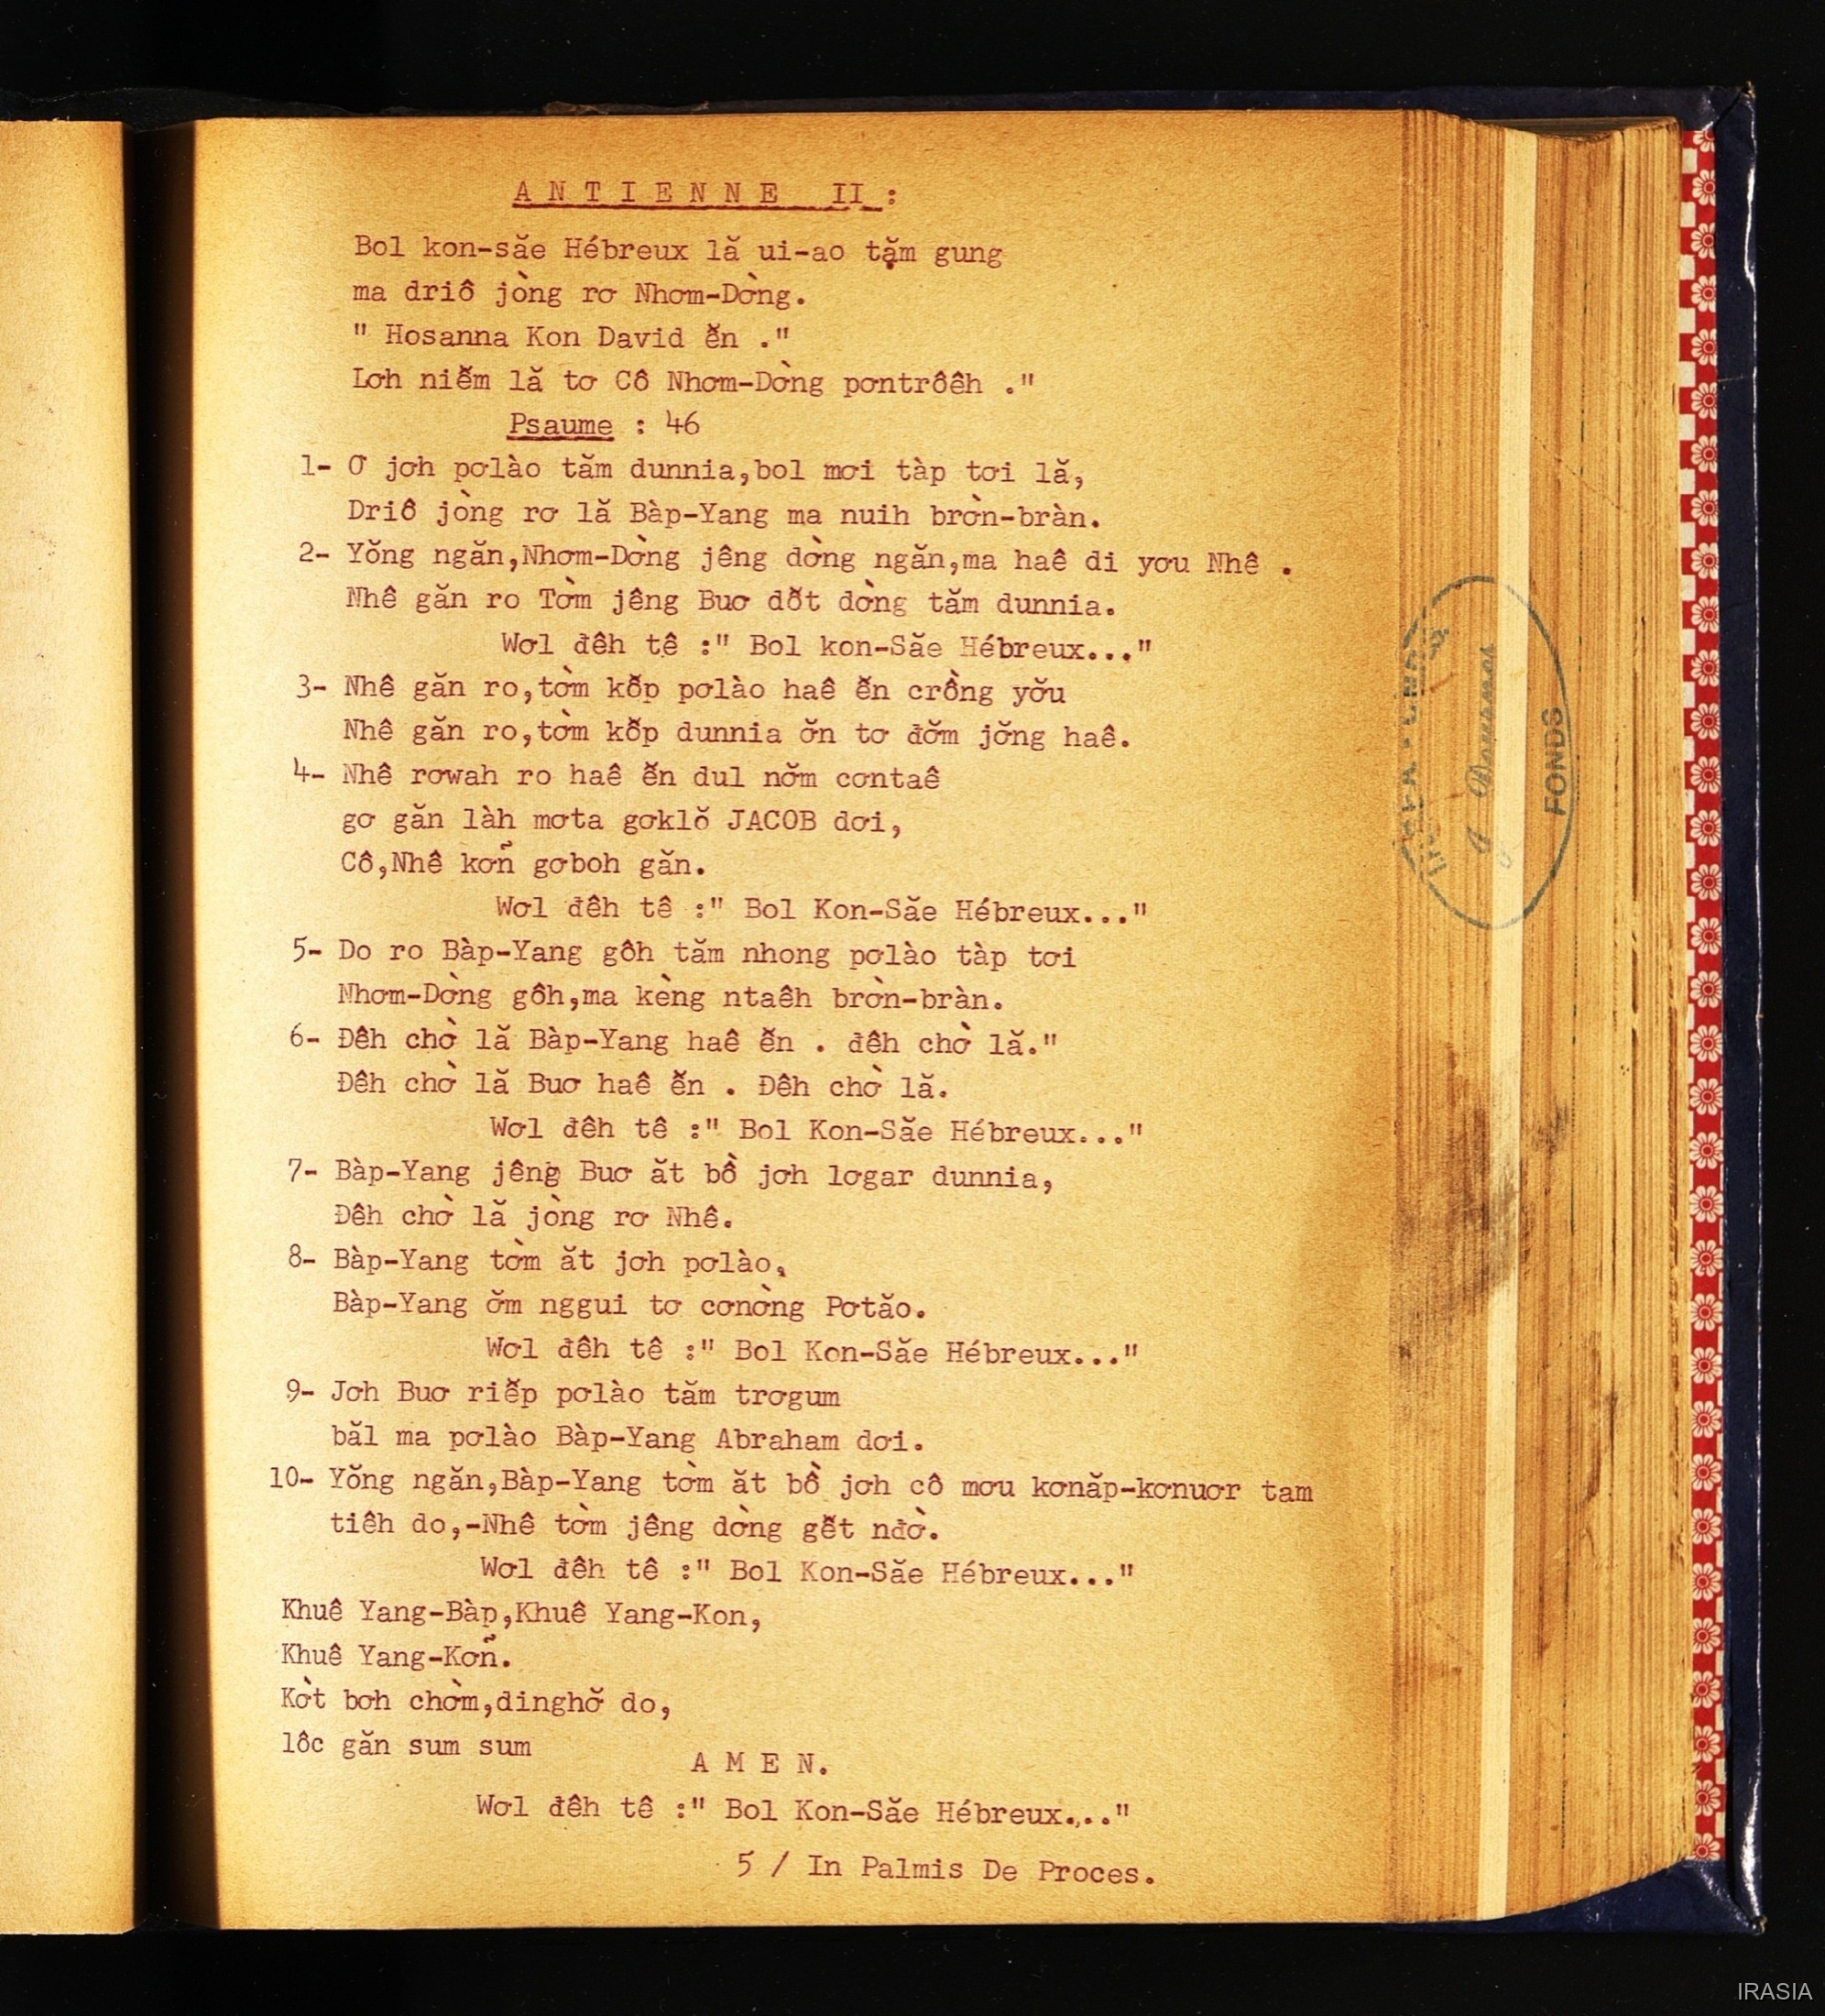 A N T I E N N E II :
Bol kon-săe Hébreux lă ui-ao tặm gung
ma driô jòng rơ Nhơm-Dờng.
" Hosanna Kon David ê̆n ."
Lơh niê̆m lă tơ Cô Nhơm-Dờng pơntrôêh ."
Psaume : 46
1- Ơ jơh pơlào tăm dunnia,bol mơi tàp tơi lă,
Driô jòng rơ lă Bàp-Yang ma nuih bròn-bràn.
2- Yŏng ngăn,Nhơm-Dờng jêng dờng ngăn,ma haê di yơu Nhê .
Nhê găn ro Tờm jêng Buơ dô̆t dờng tăm dunnia.
Wơl đêh tê :" Bol kon-Săe Hébreux..."
3- Nhê găn ro,tờm kô̆p pơlào haê ê̆n crồng yơ̆u
Nhê găn ro,tờm kô̆p dunnia ơ̆n tơ đơ̆m jơ̆ng haê.
4- Nhê rơwah ro haê ê̆n dul nơ̆m cơntaê
gơ găn làh mơta gơklŏ JACOB dơi,
Cô,Nhê kơñ gơboh găn.
Wơl đêh tê :" Bol Kon-Săe Hébreux..."
5- Do ro Bàp-Yang gôh tăm nhong pơlào tàp tơi
Nhơm-Dờng gôh,ma kèng ntaêh bròn-bràn.
6- Đêh chờ lă Bàp-Yang haê ê̆n . đêh chờ lă."
Đêh chờ lă Buơ haê ê̆n . Đêh chờ lă.
Wơl đêh tê :" Bol Kon-Săe Hébreux..."
7- Bàp-Yang jêng Buơ ăt bồ jơh lơgar dunnia,
Đêh chờ lă jòng rơ Nhê.
8- Bàp-Yang tờm ăt jơh pơlào,
Bàp-Yang ơ̆m nggui tơ cơnờng Pơtăo.
Wơl đêh tê :" Bol Kon-Săe Hébreux..."
9- Jơh Buơ riê̆p pơlào tăm trơgum
băl ma pơlào Bàp-Yang Abraham dơi.
10- Yŏng ngăn,Bàp-Yang tờm ăt bồ jơh cô mơu kơnăp-kơnuơr tam
tiêh do,-Nhê tờm jêng dờng gê̆t nđờ.
Wơl đêh tê :" Bol Kon-Săe Hébreux..."
Khuê Yang-Bàp,Khuê Yang-Kon,
Khuê Yang-Kơñ.
Kờt bơh chờm,dinghơ̆ do,
lôc găn sum sum
A M E N.
Wơl đêh tê :" Bol Kon-Săe Hébreux..."
5 / In Palmis De Proces.
FONDS
IRASIA